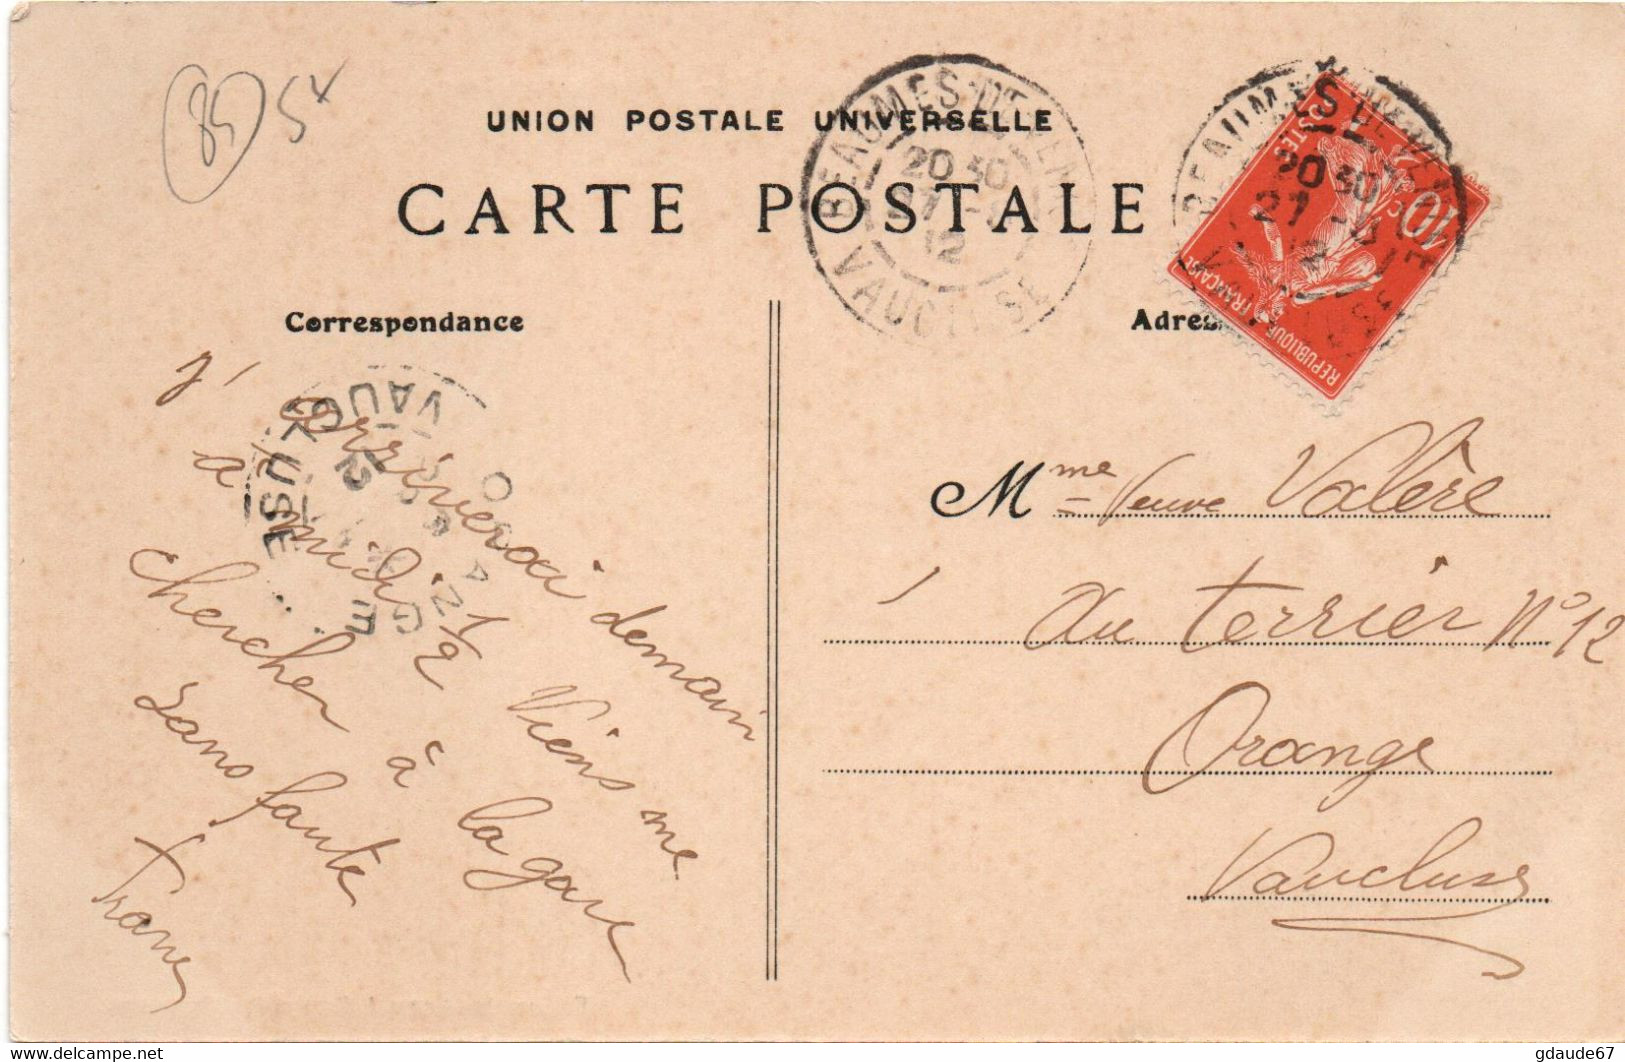 85 5x
UNION POSTALE UNIVERSELLE
CARTE POSTALE
BEAUMES-DE-VEN
20 30
27
12
VAUCLUSE
BEAUMES-DE-VENISE
20 30
27
12
POSTES
10c
REPUBLIQUE FRANÇAISE
Correspondance
Adres
ORANGE
12
VAUCLUSE
J'arriverai demain
à midi 1/2 Viens me
chercher à la gare
Sans faute
Mme Veuve Valère
Au terrier N° 12
Orange
Vaucluse
delcampe.net
gdaude67